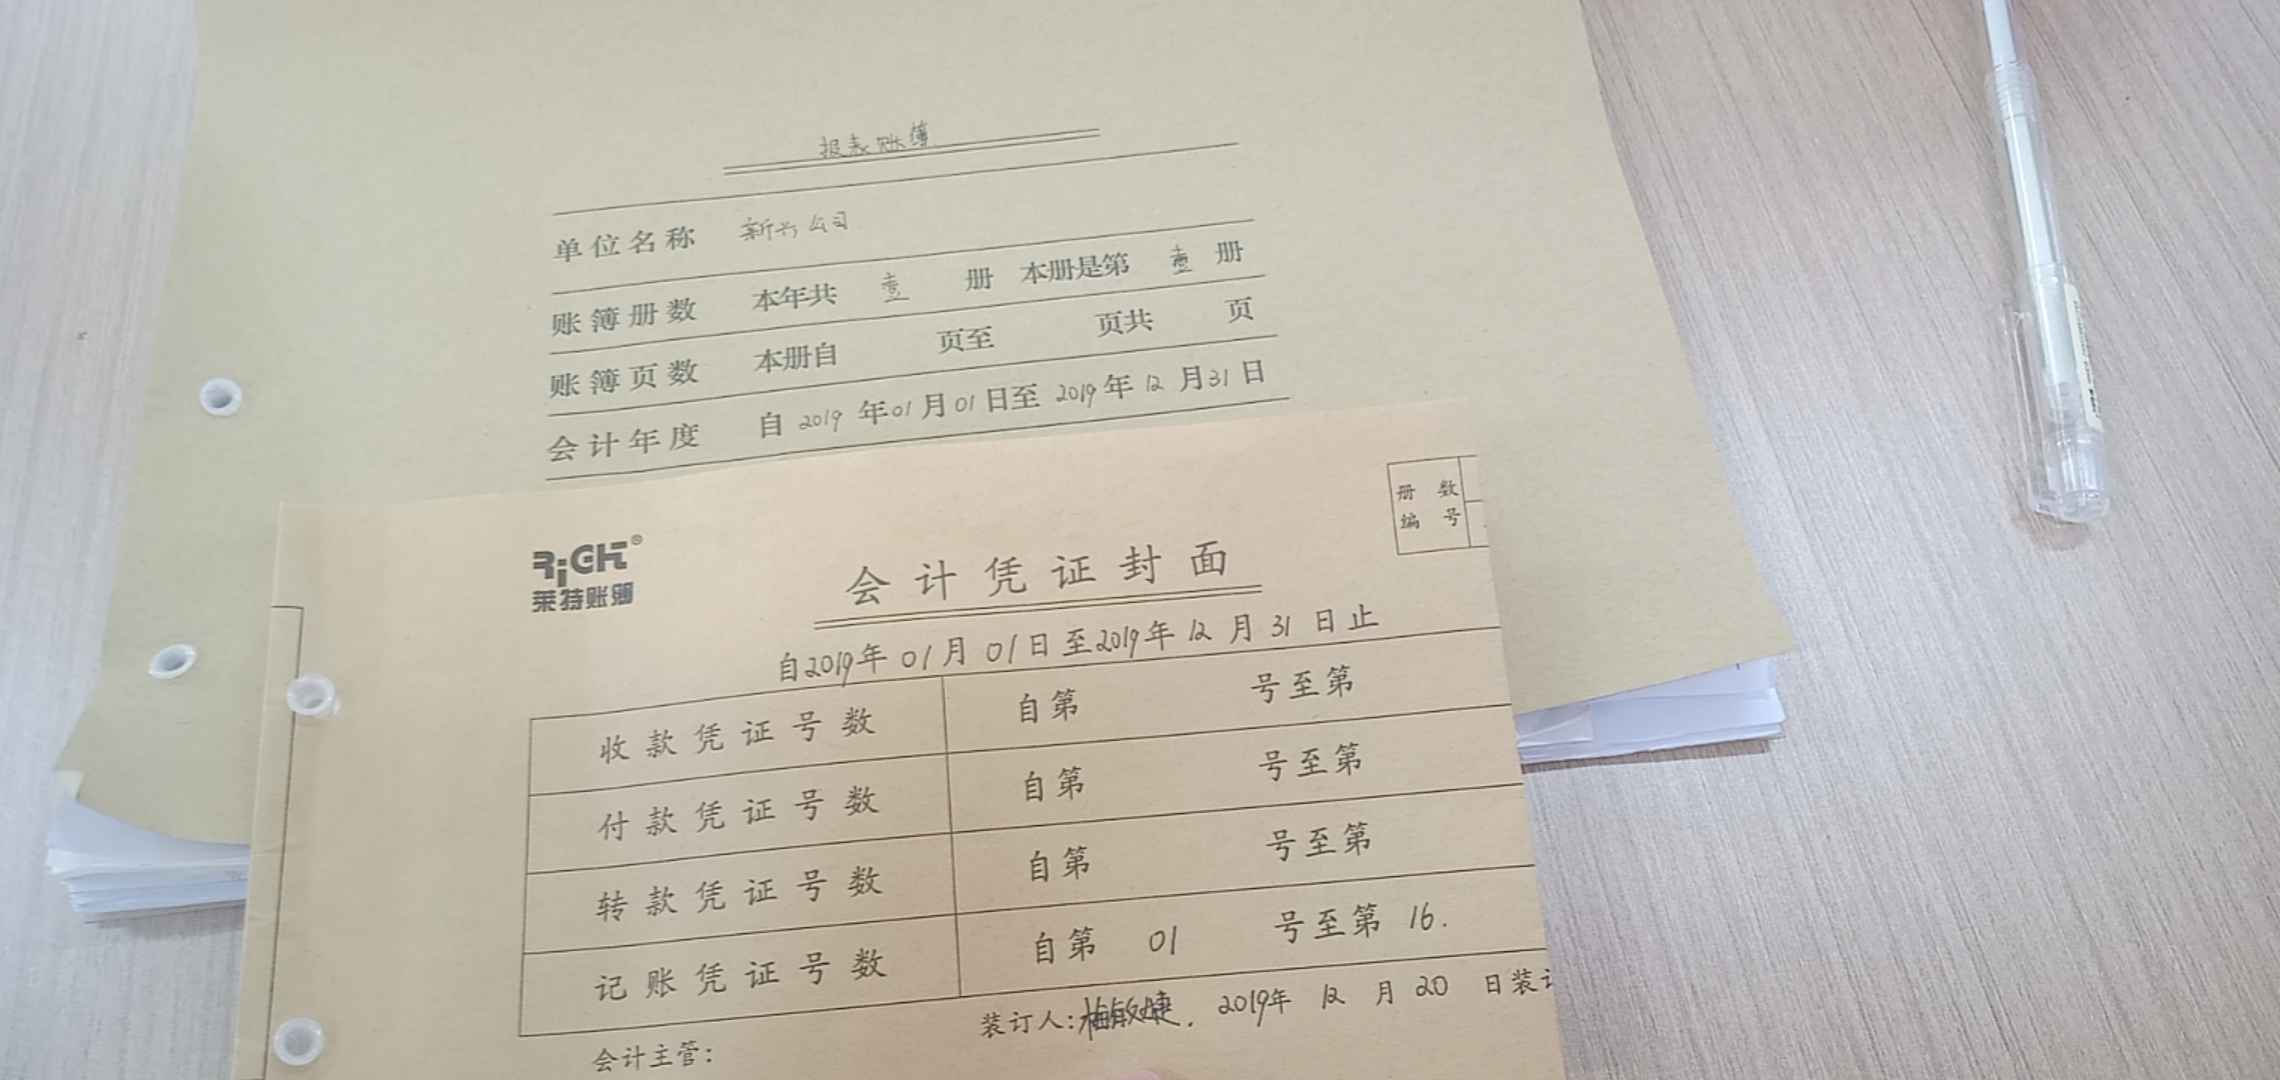 报表账簿
单位名称 新兴公司
账簿册数 本年共 壹 册 本册是第 壹 册
账簿页数 本册自 页至 页共 页
会计年度 自 2019 年 01 月 01 日至 2019 年 12 月 31 日
册数
编号
RiGHT®
莱特账簿
会计凭证封面
自2019年 01月 01日至2019年 12月 31日止
收款凭证号数 自第 号至第
付款凭证号数 自第 号至第
转款凭证号数 自第 号至第
记账凭证号数 自第 01 号至第 16.
装订人: 2019年 12月 20日装订
会计主管: